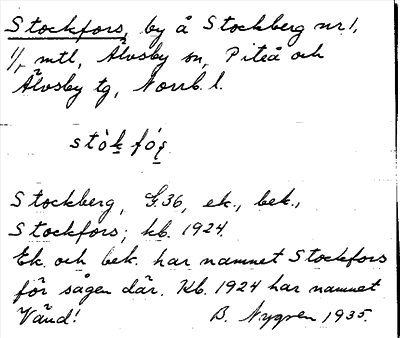 Stockfors, by å Stockberg nr 1,
1/1 mtl, Älvsby sn, Piteå och
Älvsby tg, Norrb. l.
stòk fór
Stockberg, G.36, ek., bek.,
Stockfors; kb. 1924.
Ek. och bek. har namnet Stockfors
för sågen där. Kb. 1924 har namnet
Vänd! B. Nygren 1935.